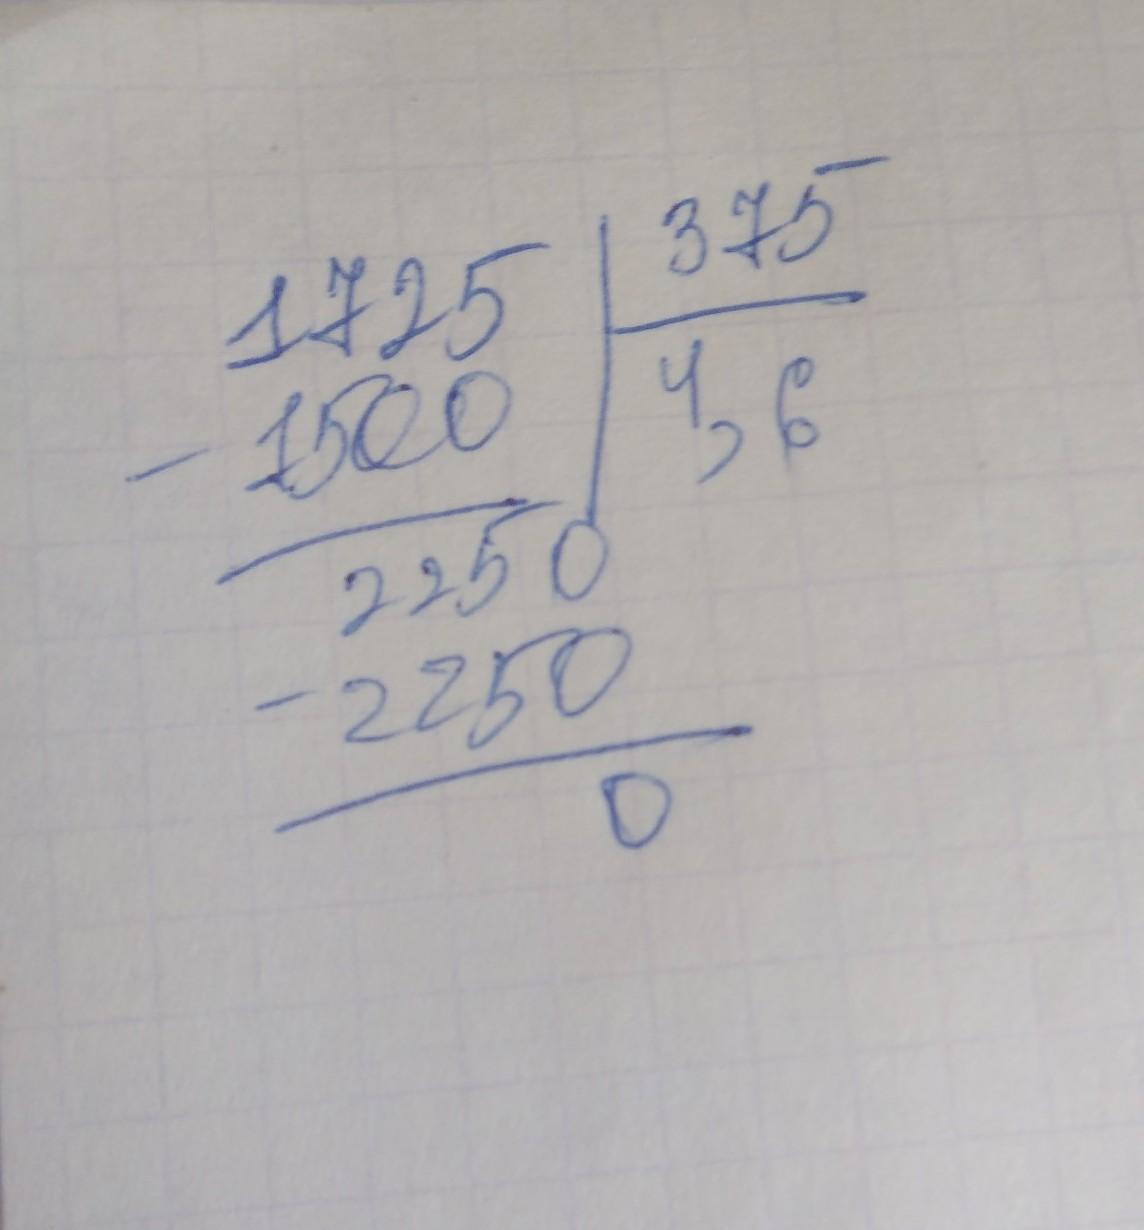 1725 375
-1500 4,6
2250
-2250
0